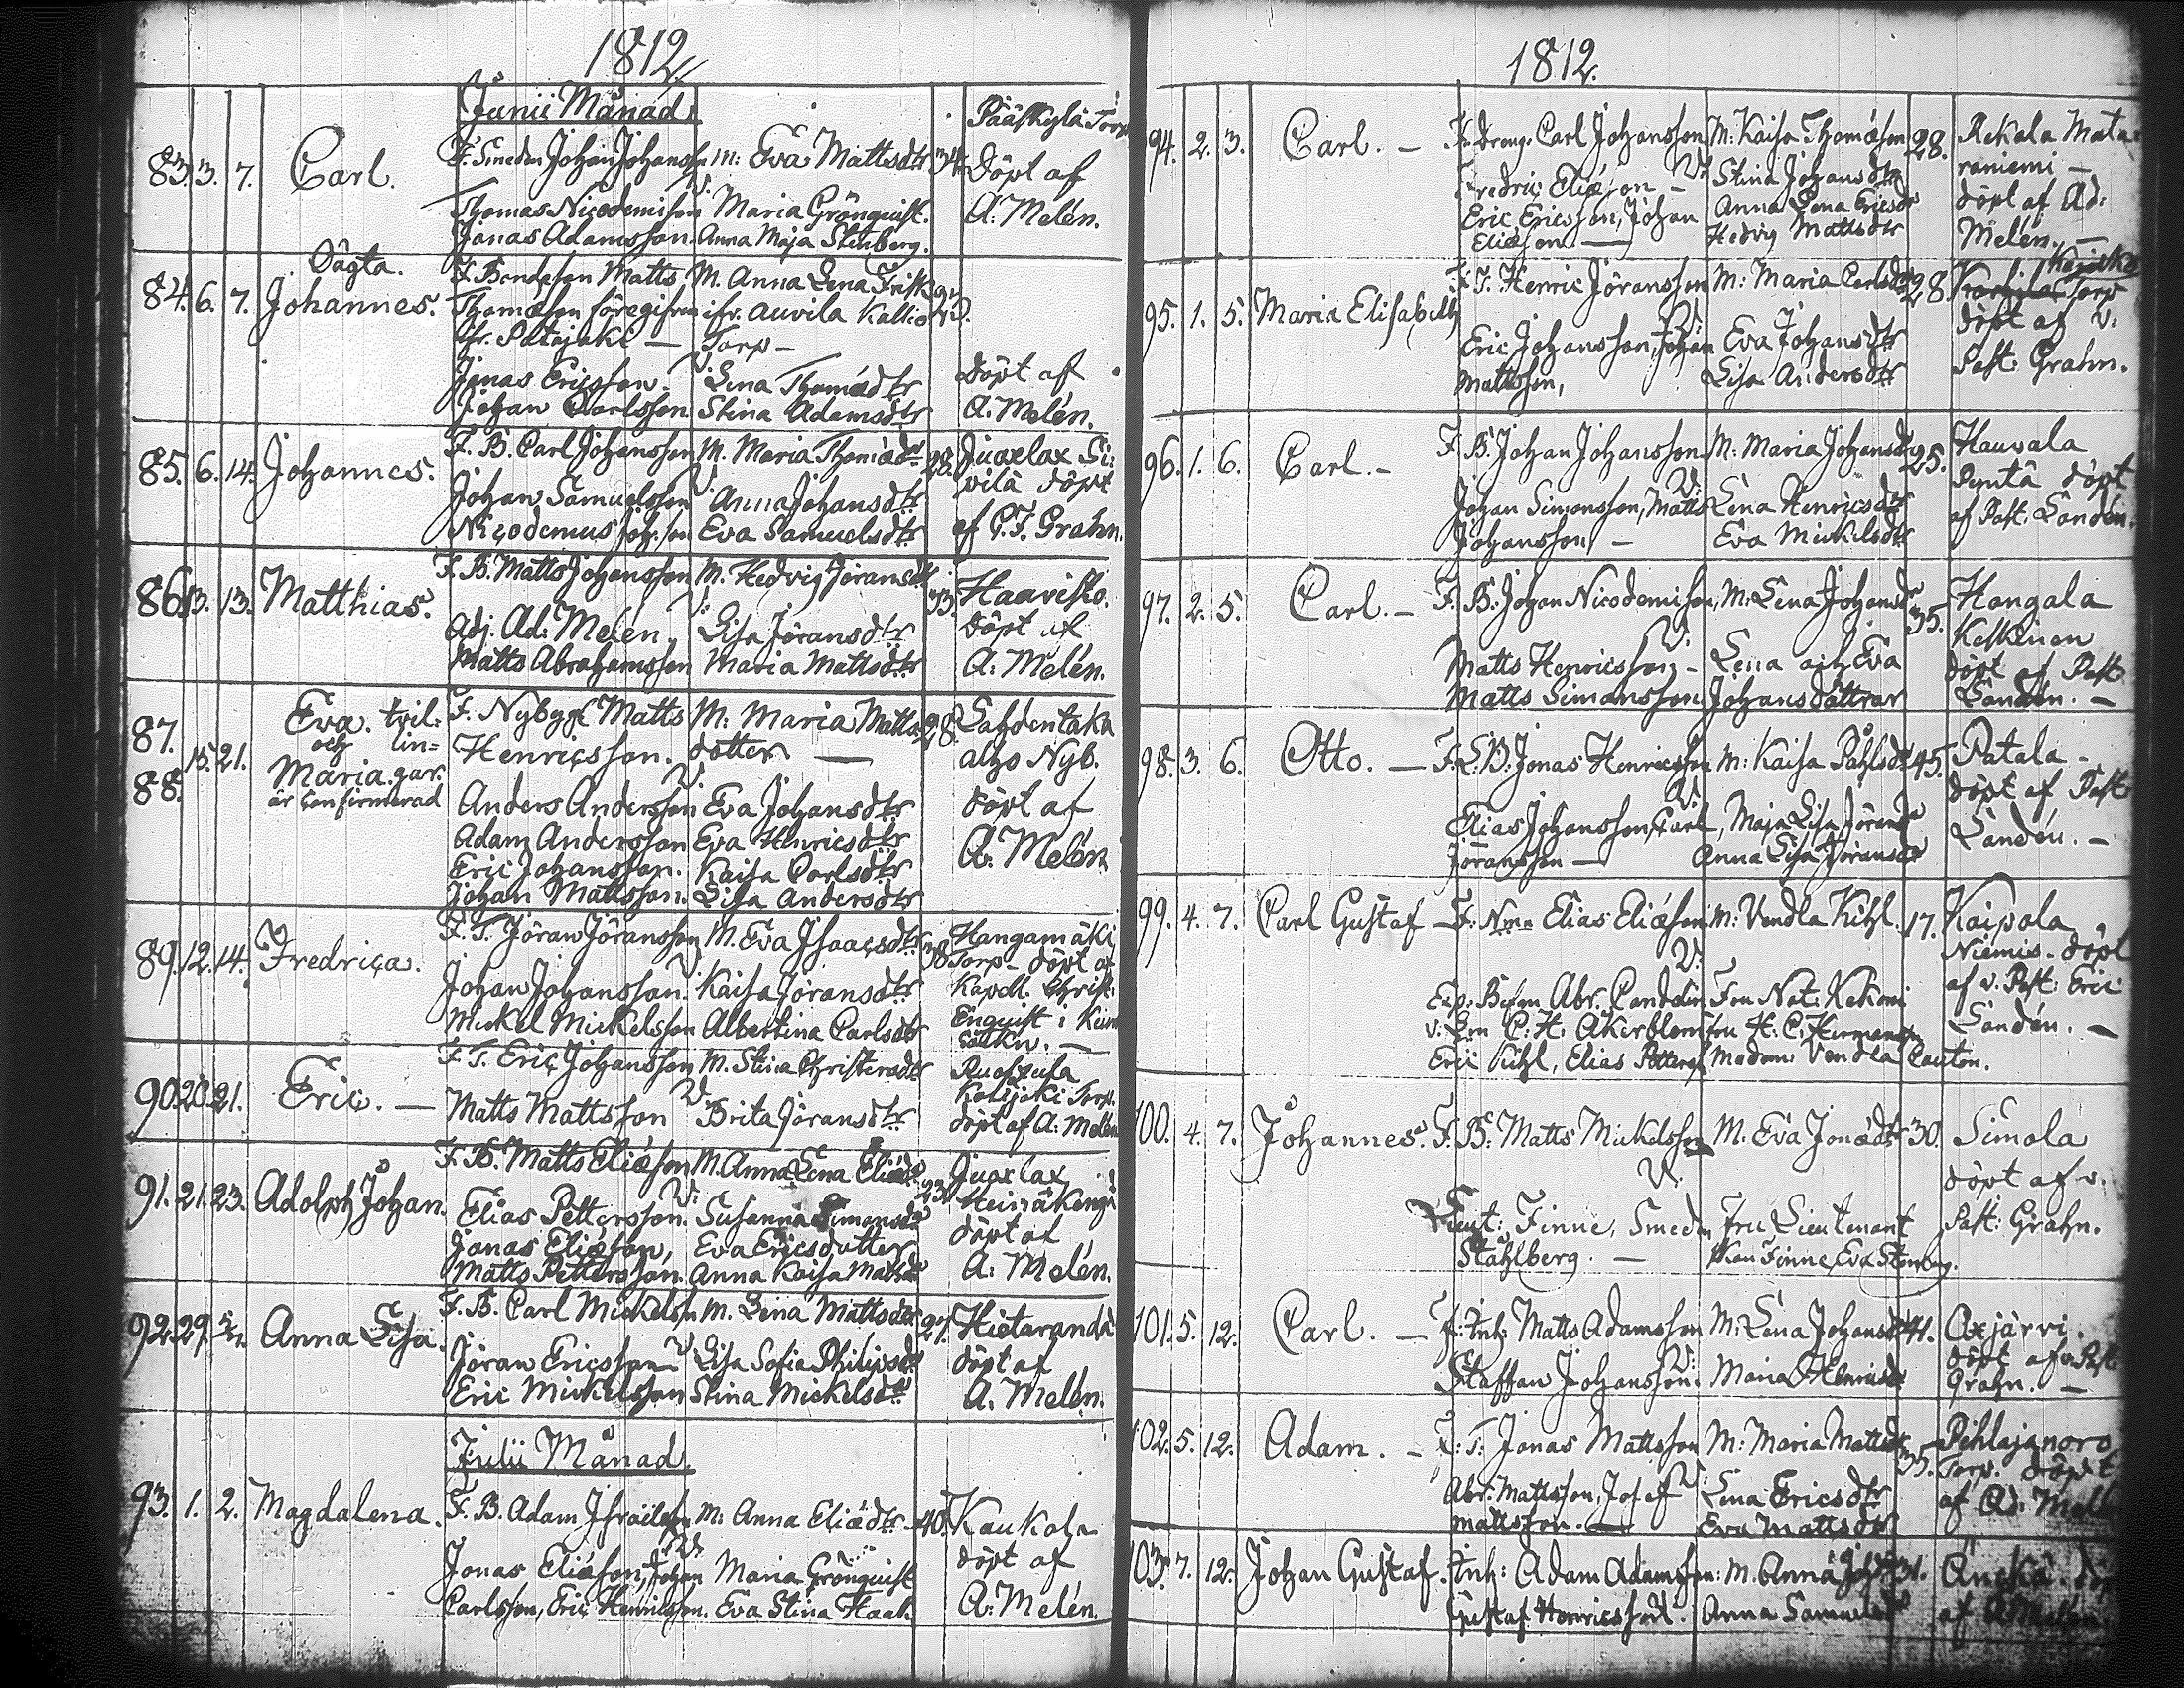 1812
Junii Månad.
83. 3. 7. Carl. F. Smeden Johan Johansson M: Eva Mattsdtr 34. Pääskylä Torp
V:
Thomas Nicodemisson Maria Grönquist. Döpt af
Jonas Adamsson. Anna Maja Stenberg. A: Melén.
84. 6. 7. Oägta. Johannes. F. Bondeson Matts M. Anna Lena Frisk
Thomasson föregifven ifr. Auvila Kallio
ifr. Patajoki — Torp —
V:
Jonas Ericsson. Lena Thomædtr Döpt af
Johan Carlsson Stina Adamsdtr A: Melén.
85. 6. 14. Johannes. F. B. Carl Johansson M. Maria Thomædr 28. Juaxlax Si-
V:
Johan Samuelsson Anna Johansdtr vilä döpt
Nicodemus Joh:son Eva Samuelsdtr af P. F. Grahn.
86. 13. 13. Matthias. F. B. Matts Johansson M. Hedvig Jöransdr 33. Haavisto.
V:
Adj. Ad: Melén. Lisa Jöransdtr Döpt af
Matts Abrahamsson Maria Mattsdtr A: Melén.
87. 88. 15. 21. Eva. tvil-
och lin-
Maria. gar.
är confirmerad
F. Nybygg: Matts M: Maria Matts 28. Lahdentaka
Henricsson. dotter — alho Nyb.
V.
Anders Andersson Eva Johansdtr döpt af
Adam Andersson Eva Henricsdtr A: Melén
Eric Johansson. Kaisa Carlsdtr
Johan Mattsson. Lisa Andersdtr
89. 12. 14. Fredrica. F. T. Jöran Jöransson M. Eva Isaacsdtr 38 Hangamäki
V. Torp – döpt af
Johan Johansson. Kaisa Jöransdtr Kapell. Christ:
Mickel Mickelsson Albertina Carlsdtr Enquist i
90. 20. 21. Eric. — F. T. Eric Johansson M. Stina Christersdtr
V.
Matts Mattsson Brita Jöransdtr Torp.
döpt af A: Melén
91. 21. 23. Adolph Johan. F. B. Matts Eliæson M. Anna Lena Eliædr 23. Juaxlax
V:
Elias Pettersson. Susanna Simonsdr
Jonas Eliæson, Eva Ericsdotter döpt af
Matts Pettersson. Anna Kaisa Mattsdr A: Melén.
92. 29. Anna Lisa. F. B. Carl Mickelsson M. Lena Mattsdtr 27. Hietaranda
V
Jöran Ericsson Lisa Sofia Philipsdr döpt af
Eric Mickelsson Stina Mickelsdr A. Melén.
Julii Månad.
93. 1. 2. Magdalena. F. B. Adam Israelson M: Anna Eliædtr 40. Kaukola
V.
Jonas Eliæson, Johan Maria Grönquist döpt af
Carlsson, Eric Henricsson. Eva Stina Haak A: Melén.
1812.
94. 2. 3. Carl. — F. Dreng. Carl Johansson M: Kaisa Thomæson 28. Rekola Mata-
V.
Fredric Eliæson — Stina Johansdtr raniemi —
Eric Ericsson, Johan Anna Lena Ericsdr döpt af Ad:
Eliæson. — Hedvig Mattsdtr Melén. —
95. 1. 5. Maria Elisabeth F. T. Henric Jöransson M: Maria Carlsdtr 28. Torp
V.
Eric Johansson, Johan Eva Johansdtr döpt af v:
Mattsson, Lisa Andersdtr Past: Grahn.
96. 1. 6. Carl. — F. B. Johan Johansson M: Maria Johansdr 25. Hauvala
V:
Johan Simonsson, Matts Lena Henricsdtr Pyntä döpt
Johansson, — Eva Mickelsdtr af Past: Sandén.
97. 2. 5. Carl. — F. B. Johan Nicodemisson, M: Lena Johansdr 35. Hangala
V. Kelkinen
Matts Henricsson, — Lena och Eva döpt af Past
Matts Simonsson Johansdöttrar Sandén. —
98. 3. 6. Otto. — F. L. B. Jonas Henricsson M: Kaisa Påhlsdr 45. Patala –
V. döpt af Past
Elias Johansson, Carl Maja Lisa Jöransdr Sandén. —
Jöransson — Anna Lisa Jöransdr
99. 4. 7. Carl Gustaf — F: Elias Eliæson M: Vendla Kihl. 17. Kaipola
V. Niemis. döpt
Abr. Fru Not: af v. Past: Eric
C: H: Åkerblom Fru H. C. Sandén. —
Eric Kihl, Elias Madam: Vendla
100. 4. 7. Johannes. F. B: Matts Mickelsson M. Eva Jonædtr 30. Simola
V. döpt af v.
Lieut: Finne, Smeden Fru Lieutenant Past: Grahn.
Ståhlberg. — Finne, Eva Stenberg.
101. 5. 12. Carl. — F: Inh: Matts Adamsson M: Lena Johansdr 41. Oxjärvi.
V. döpt af v. Past
Staffan Johansson. Maria Henricsdr Grahn. —
102. 5. 12. Adam. — F: T. Jonas Mattsson M: Maria Mattsdr 35. Pihlajanoro
V. Torp. döpt
Abr. Mattsson, Josef Lena Ericsdtr af Ad: Melén
Mattsson. — Eva Mattsdtr
103. 7. 12. Johan Gustaf. Inh: Adam Adamsson: M. Anna 31.
Gustaf Henricsson. Anna Samuelsdr af A Melén